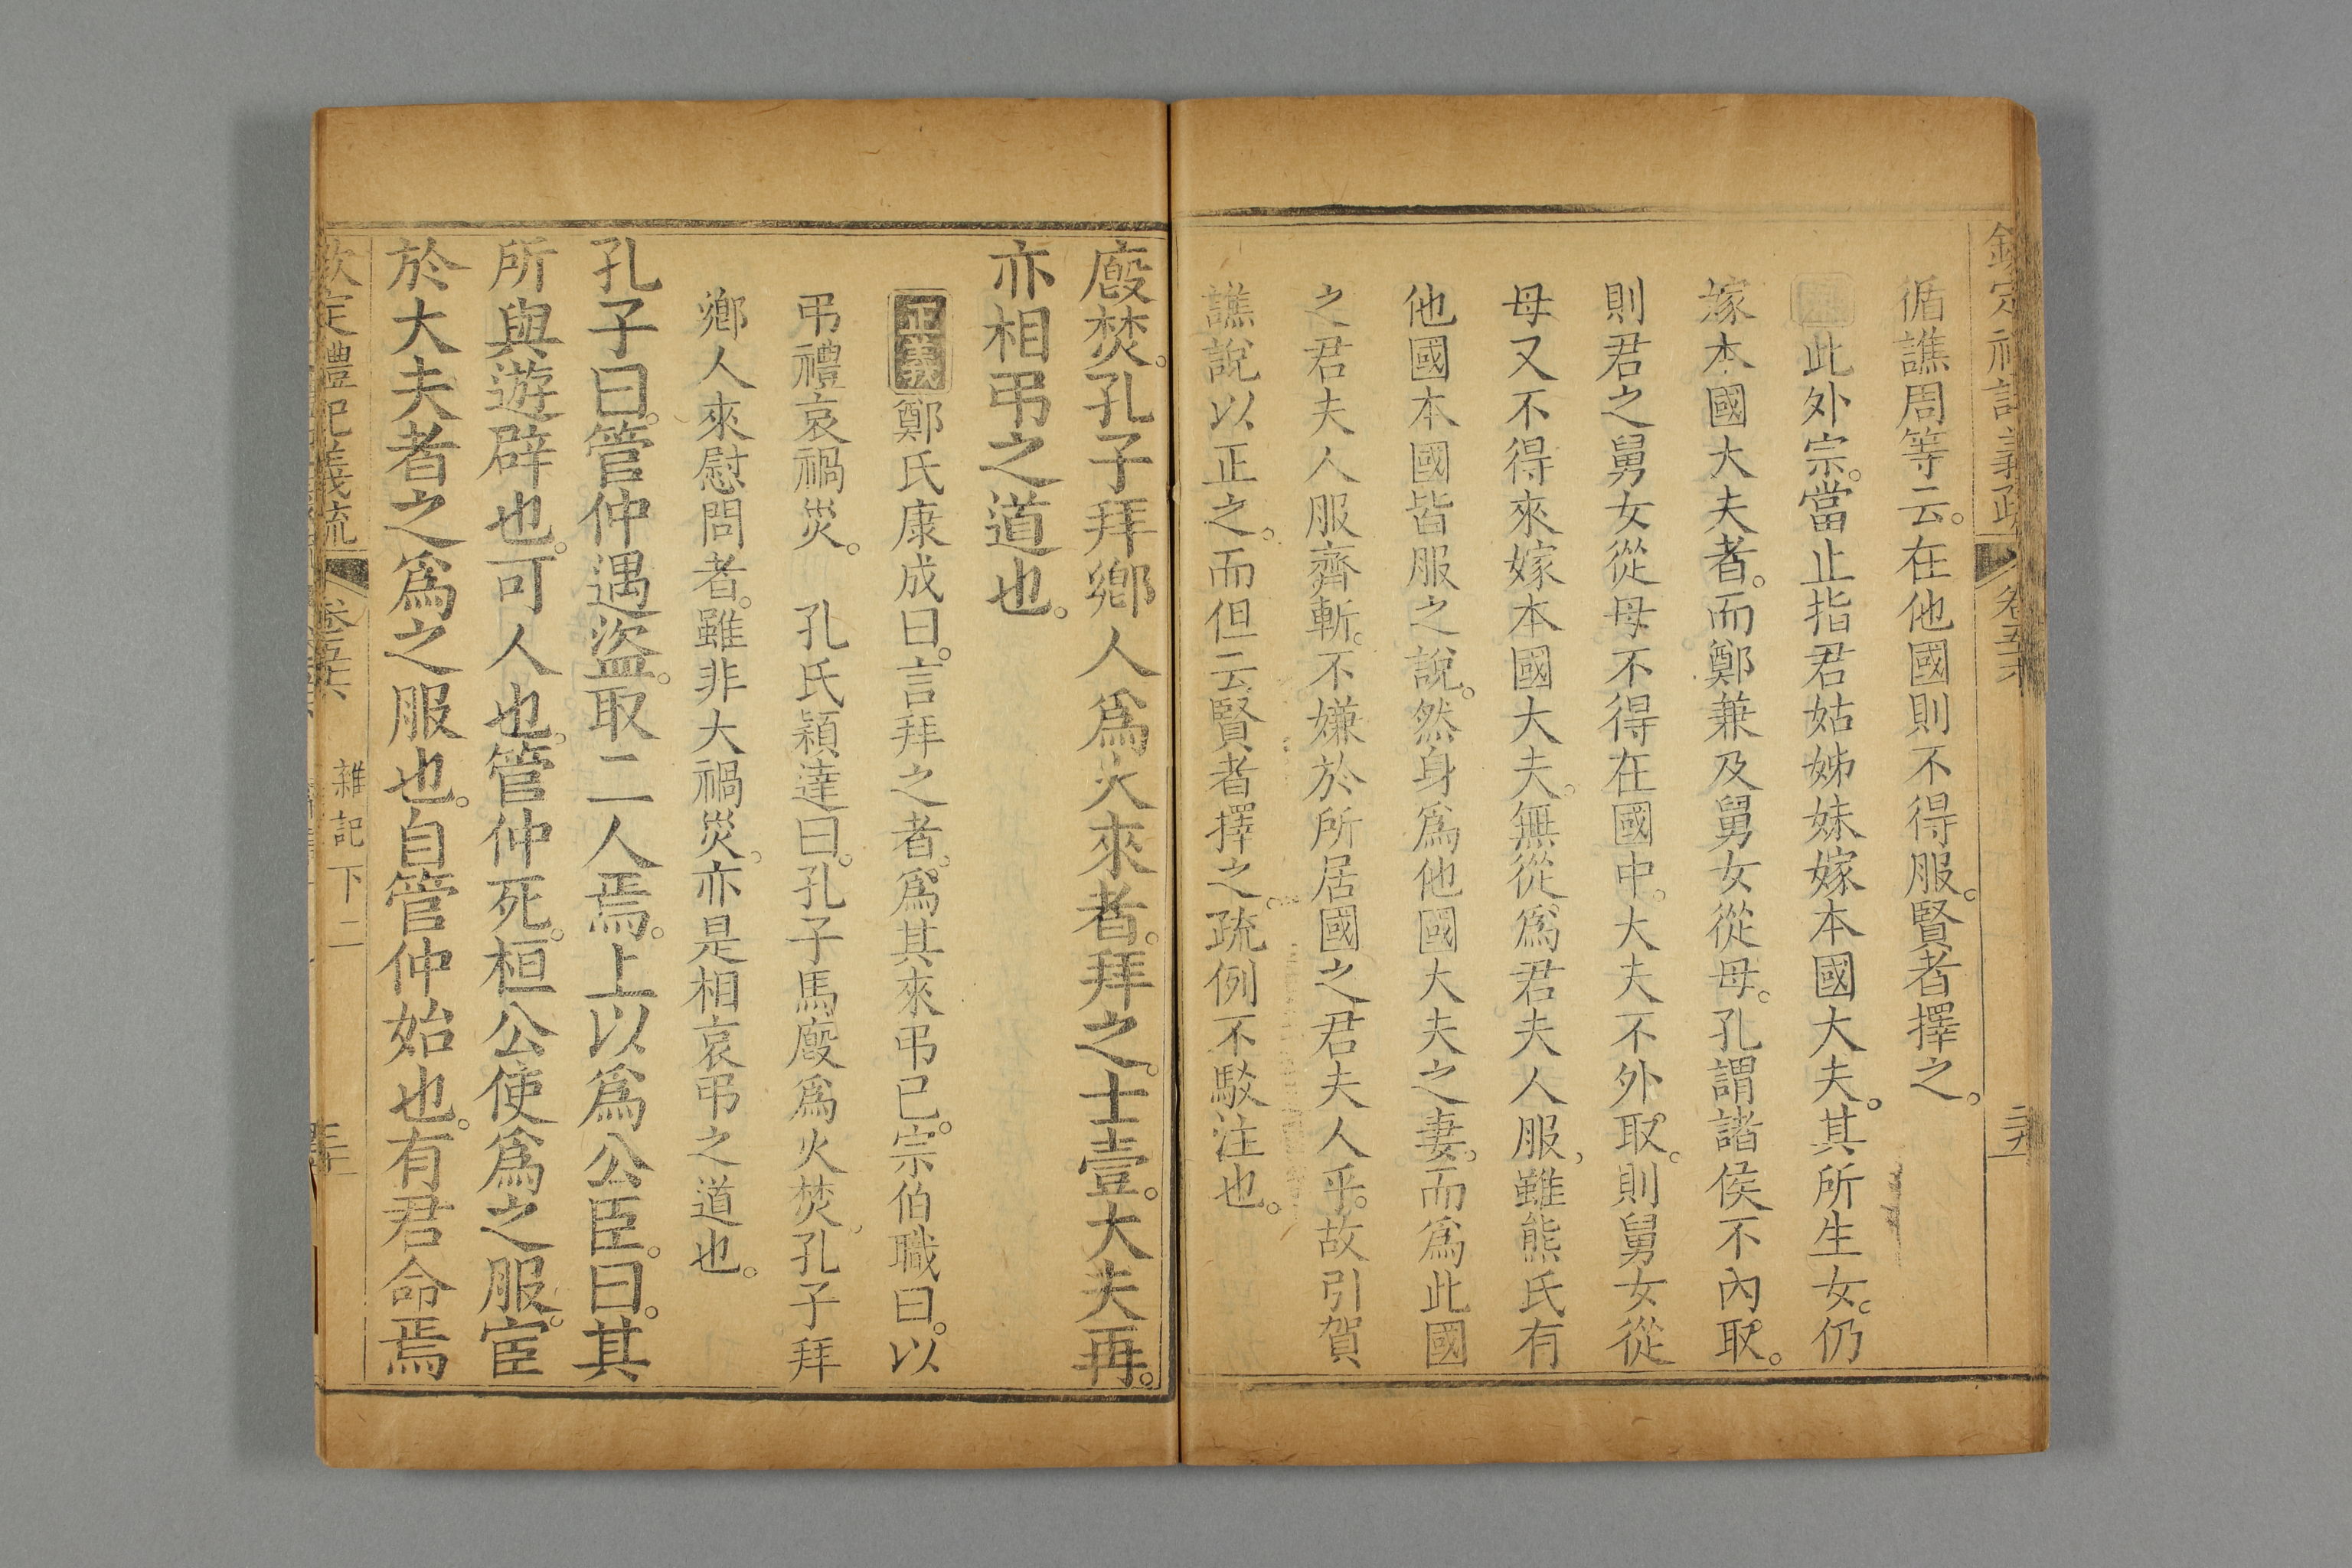 循譙周等云。在他國則不得服。賢者擇之。
此外宗。當止指君姑姊妹嫁本國大夫。其所生女。仍
嫁本國大夫者。而鄭兼及舅女從母。孔謂諸侯不內取。
則君之舅女從母不得在國中。大夫不外取。則舅女從
母又不得來嫁本國大夫。無從爲君夫人服。雖熊氏有
他國本國皆服之說。然身爲他國大夫之妻。而爲此國
之君夫人服齊斬。不嫌於所居國之君夫人乎。故引賀
譙說以正之。而但云賢者擇之。疏例不駁注也。
廄焚。孔子拜鄉人爲火來者。拜之。士壹。大夫再。
亦相弔之道也。
正義鄭氏康成曰。言拜之者。爲其來弔己。宗伯職曰。以
弔禮哀禍災。 孔氏穎達曰。孔子馬廄爲火焚。孔子拜
鄉人來慰問者。雖非大禍災。亦是相哀弔之道也。
孔子曰。管仲遇盜。取二人焉。上以爲公臣。曰。其
所與遊辟也。可人也。管仲死。桓公使爲之服。宦
於大夫者之爲之服也。自管仲始也。有君命焉
定禮記義疏 雜記下二